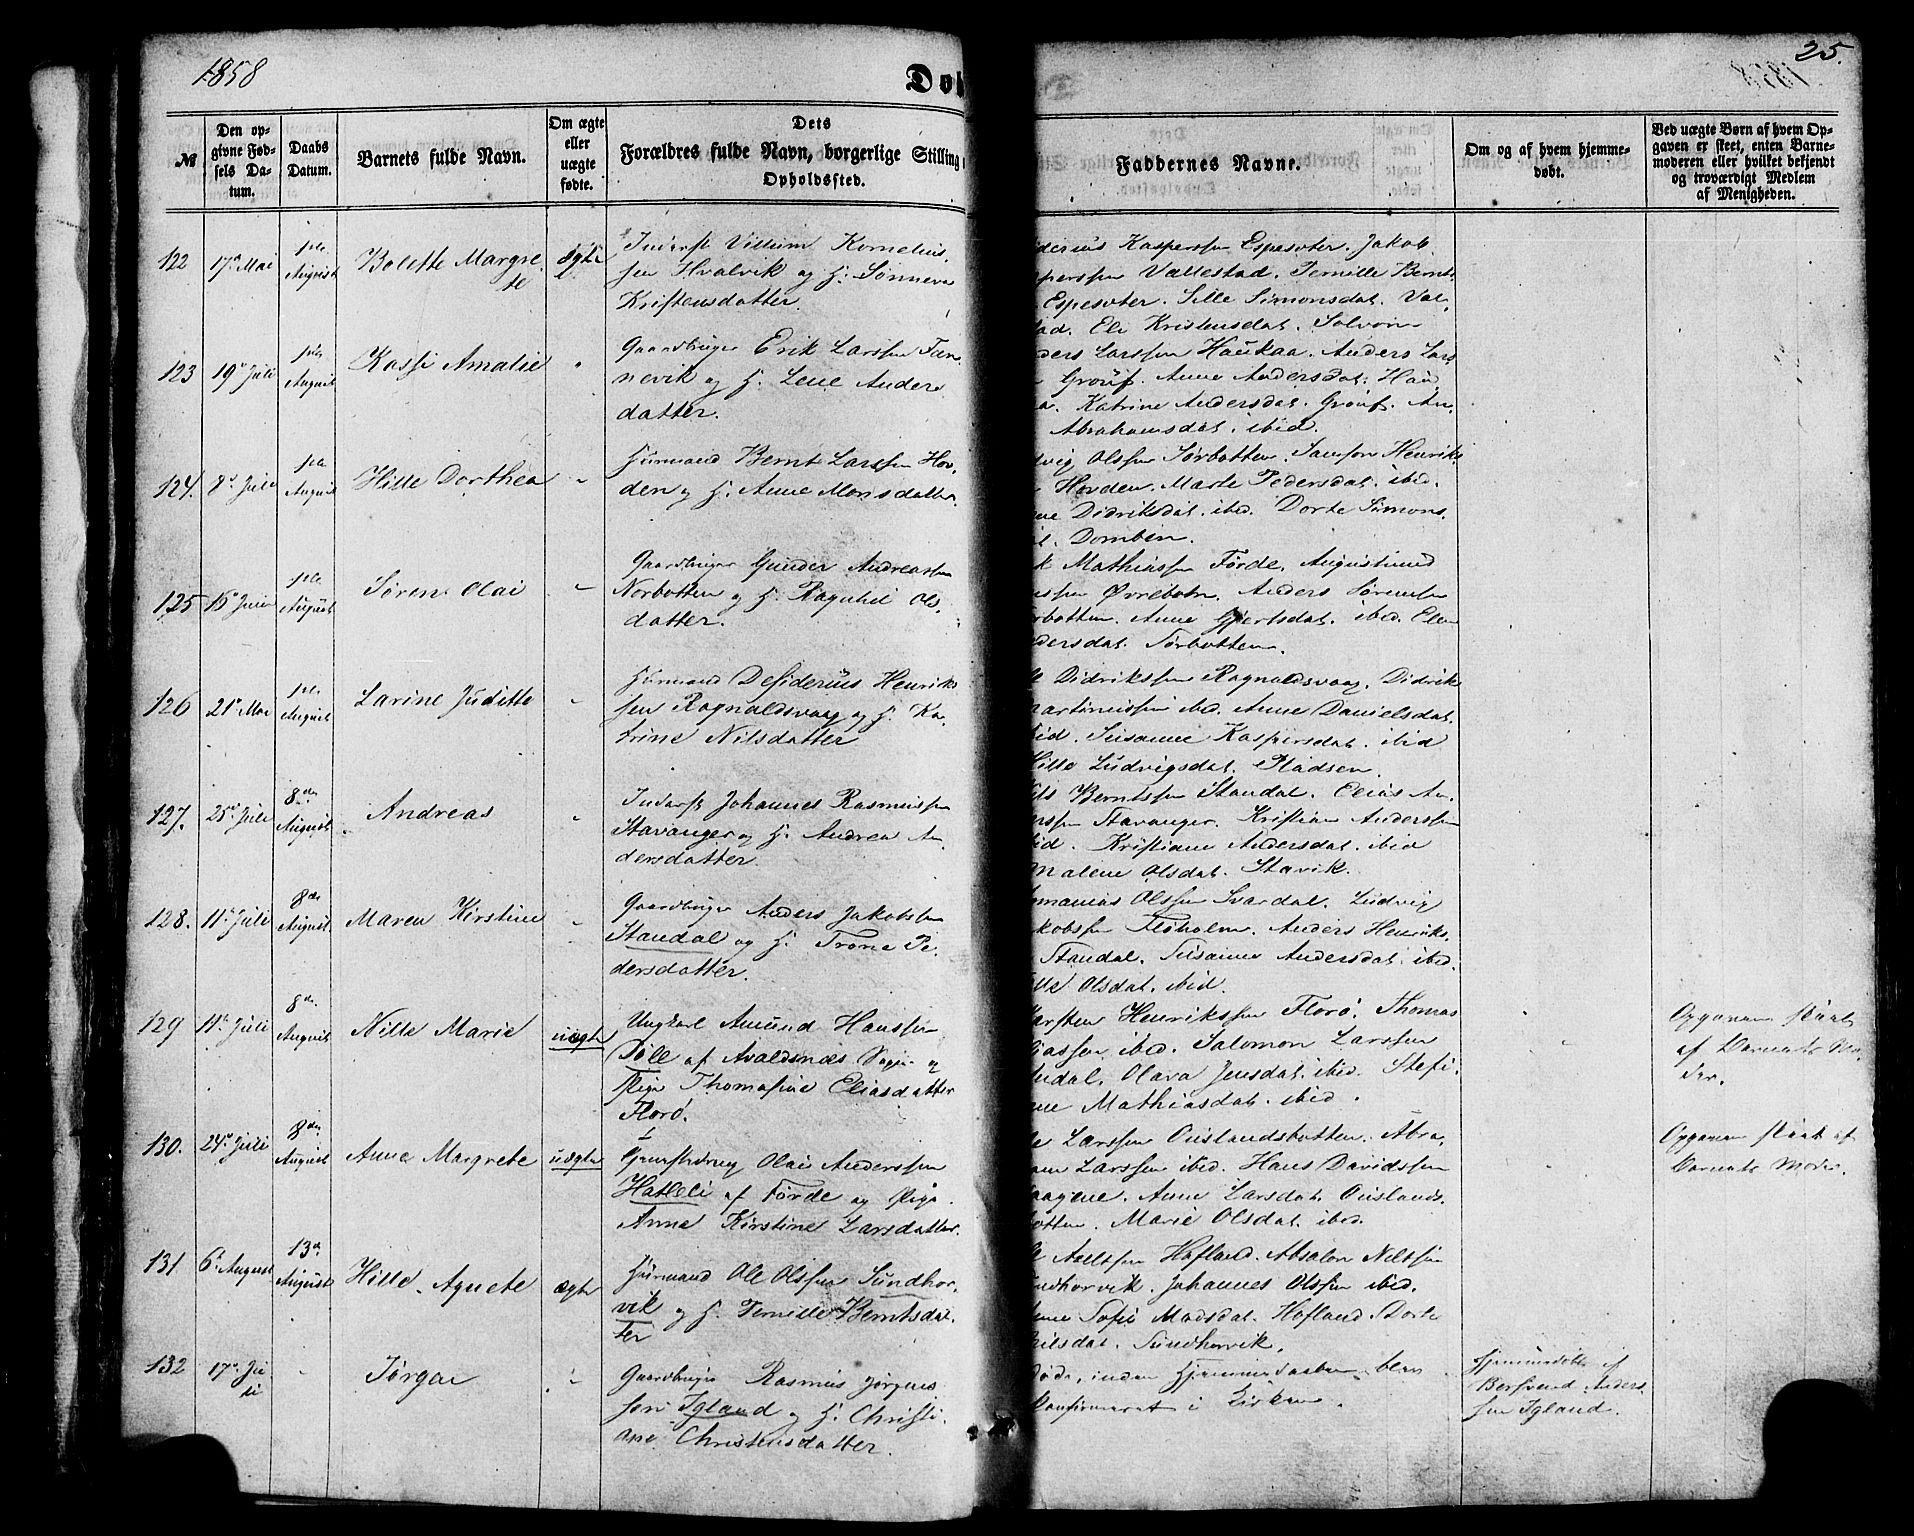 1858
Døb
25.
№
Den op-
givne Fød-
sels Da-
tum.
Daabs
Datum.
Barnets fulde Navn.
Om ægte
eller
uægte
fødte.
Dets
Forældres fulde Navn, borgerlige Stilling
Opholdssted.
Faddernes Navne.
Om og af hvem hjemme-
døbt.
Ved uægte Børn af hvem Op-
gaven er skeet, enten Barne-
moderen eller hvilket bekjendt
og troværdigt Medlem
af Menigheden.
122
17de Mai
1ste August
Bolette Margre-
te
ægte
Inderst Villum Kornelius-
sen Hvalvik og H. Sønneva
Kristensdatter.
derius Kaspersen Espesæter. Jakob
persen Vallestad. Pernille Bernts
Espesæter. Sille Simonsdat. Val-
ad. Eli Kristensdat. Solvøn
123
19de Juli
1ste August
Kassi Amalie
"
Gaardbruger Erik Larssen Tan-
nevik og H. Lene Anders
datter.
ders Larssen Haukaa. Anders Lars
Grøuf. Anne Andersdat. Hau
a. Katrine Andersdat. Grøuf. An
Abrahamsdat. ibid.
124.
8de Juli
1ste August
Hille Dorthea
"
Huusmand Bernt Larssen Hov-
den og H. Anne Monsdatter
vig Olssen Sørbotten. Samson Henriks
Hovden. Marte Pedersdat. ibid.
ne Didriksdat. ibid. Dorte Simons
t. Domben.
125
15de Juni
1ste August
Søren Olai
"
Gaardbruger Gunder Andreassen
Norbotten og H. Ragnhil Ols-
datter.
k Mathiassen Førde. Augustinud
ssen Øvrebotn. Anders Sørensen
rbotten. Anne Gjertsdat. ibid. Elen
dersdat. Sørbotten.
126
21de Mai
1ste August
Larine Juditte
"
Huusmand Desiderius Henriks
sen Ragnaldsvaag og H. Ka-
trine Nilsdatter
le Didrikssen Ragnaldsvaag. Didrik
artinussen ibid. Anne Danielsdat.
bid. Susanne Kaspersdat. ibid
Hille Ludvigsdat. Pladsen.
127.
25de Juli
8de August
Andreas
"
Inderst Johannes Rasmussen
Stavanger og H. Andrea An-
dersdatter.
ls Berntssen Standal. Elias An-
erssen Stavanger. Kristian Anderssen
bid. Kristiane Andersdat. ibid
Malene Olsdat. Stavik.
128.
11de Juli
8de August
Maren Kirstine
"
Gaardbruger Anders Jakobssen
Standal og H. Trone Pe-
dersdatter.
manias Olssen Svardal. Ludvig
kobssen Fløholm. Anders Henriks.
Standal. Susanne Andersdat. ibid.
lle Olsdat. ibid.
129
11de Juli
8de August
Nille Marie
uægte
Ungkarl Amund Hanssen
Døll af Avaldsnæs Sogn og
Pige Thomasine Eliasdatter
Florø.
arsten Henrikssen Florø. Thomas
iassen ibid. Salomon Larssen
ndal. Olava Jensdat. ibid. Stefi-
ne Mathiasdat. ibid.
Opgaven skeet
af Barnets Mo-
der.
130.
24de Juli
8de August
Anne Margrete
uægte
Olai Anderssen
Hatleli af Førde og Pige
Anne Kirstine Larsdatter.
le Larssen Ouslandsbotten. Abra-
am Larssen ibid. Hans Davidssen
aagene. Anne Larsdat. Ouslands-
otten. Marie Olsdat. ibid.
Opgaven skeet af
Barnets Moder.
131
6te August
13de August
Hille Agnete
ægte
Huusmand Ole Olssen Sundhor-
vik og H. Pernille Berntsdat-
ter
le Axelssen Hofland. Absalon Nilssen
undhorvik. Johannes Olssen ibid.
ne Sofie Madsdat. Hofland. Dorte
Nilsdat. Sundhorvik.
132
17de Ju
li
"
Jørgen
"
Gaardbruger Rasmus Jørgens
sen Igland og H. Christi-
ane Christensdatter.
Døde, inden Hjemmedaaben blev
konfirmeret i Kirken.
Hjemmedøbt af
Bersvend Anders
sen Igland.